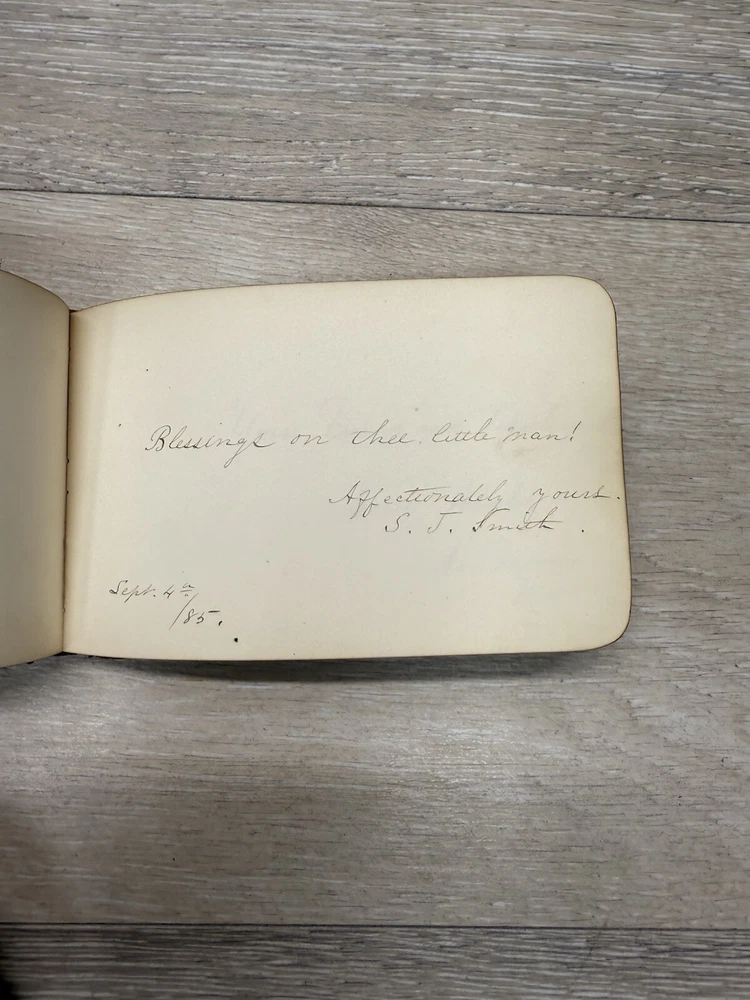 Blessings on thee little man!
Affectionately yours.
S. J. Smith.
Sept. 4th
/85.